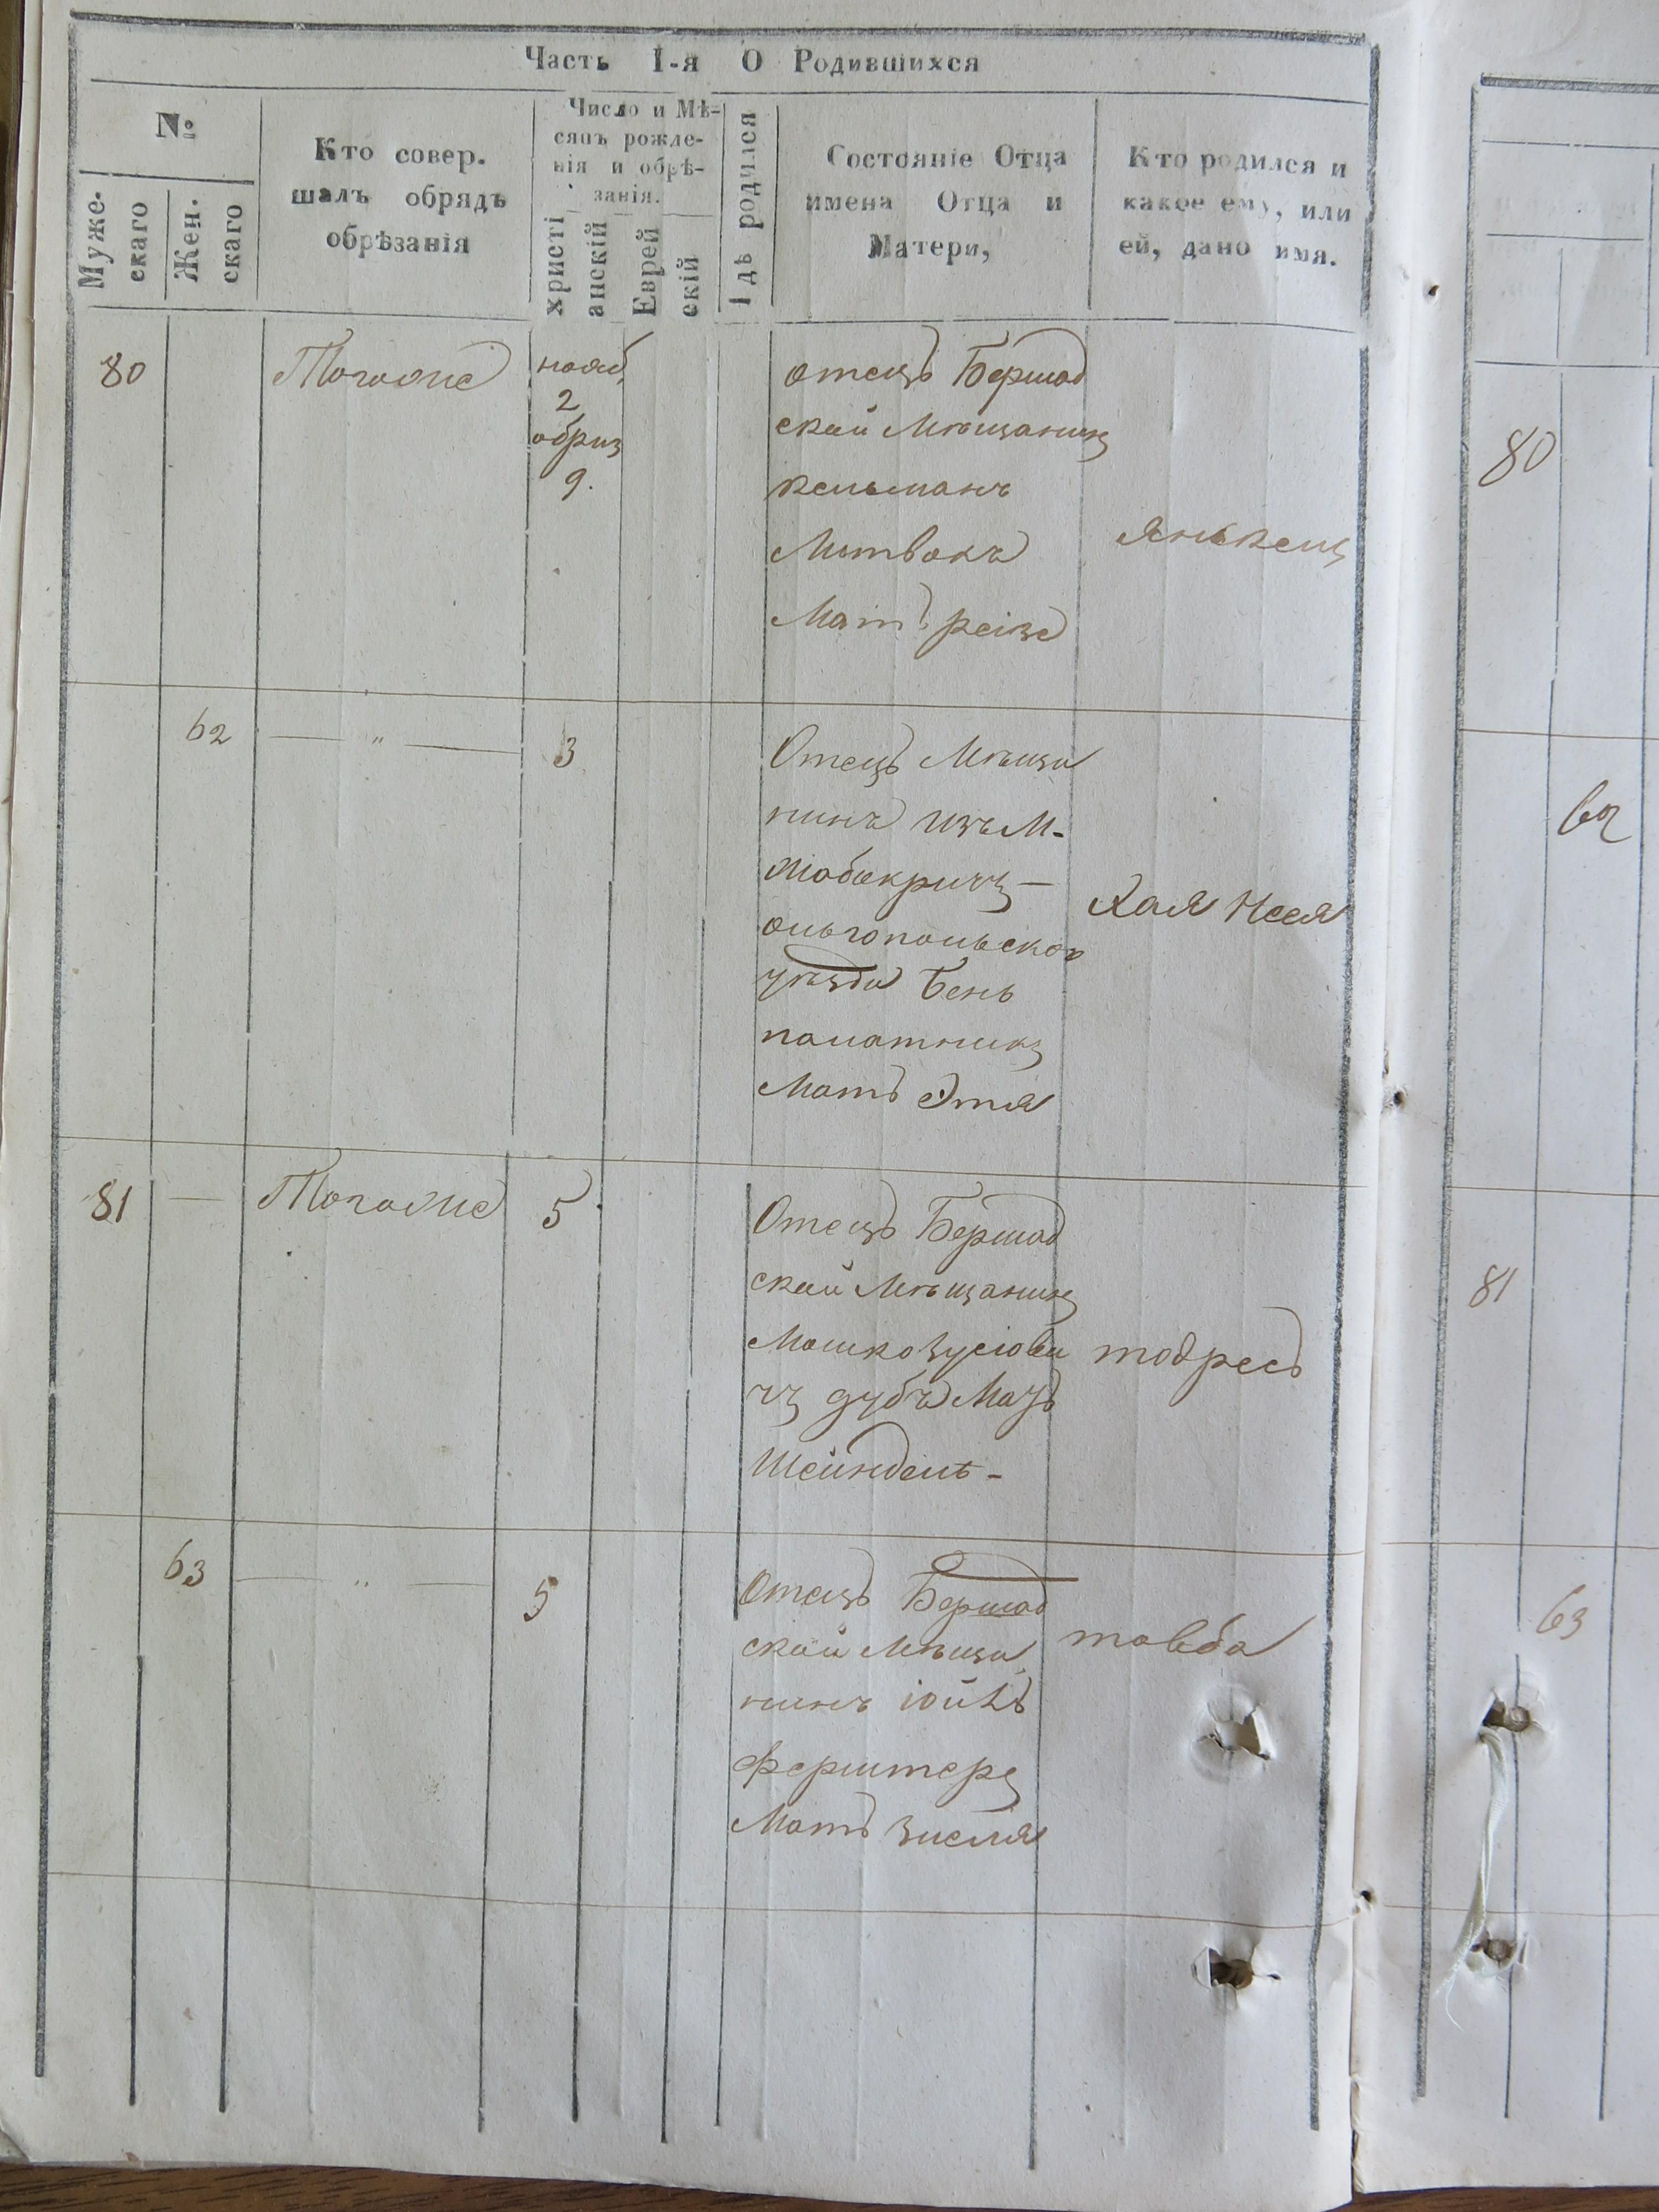 Часть I-я О Родившихся
№
Муже-
скаго
Жен.
скаго
Кто совер.
шалъ обрядъ
обрѣзанія
Число и Мѣ-
сяцъ рожде-
нія и обрѣ-
занія.
христі
анскій
Еврей
скій
Гдѣ родился
Состояніе Отца
имена Отца и
Матери,
Кто родился и
какое ему, или
ей, дано имя.
80
нояб
2
обриз
9.
отецъ Бершад
скай Мѣщанинъ
кельманъ
Литвакъ
Мать реізе
Янькель
80
62
— " —
3
Отецъ Мѣща
нинъ изъ М-
ольгопольског
уѣзда Бень
Мать Этя
Хая Неся
62
81
—
5
Отецъ Бершад
скай Мѣщанинъ
Мошко Зусіови
чъ дубъ Мать
Шейндель -
тодресъ
81
63
— " —
5
Отецъ Бершад
скай Мѣща
нинъ
ферштеръ
Мать Зисля
товба
63